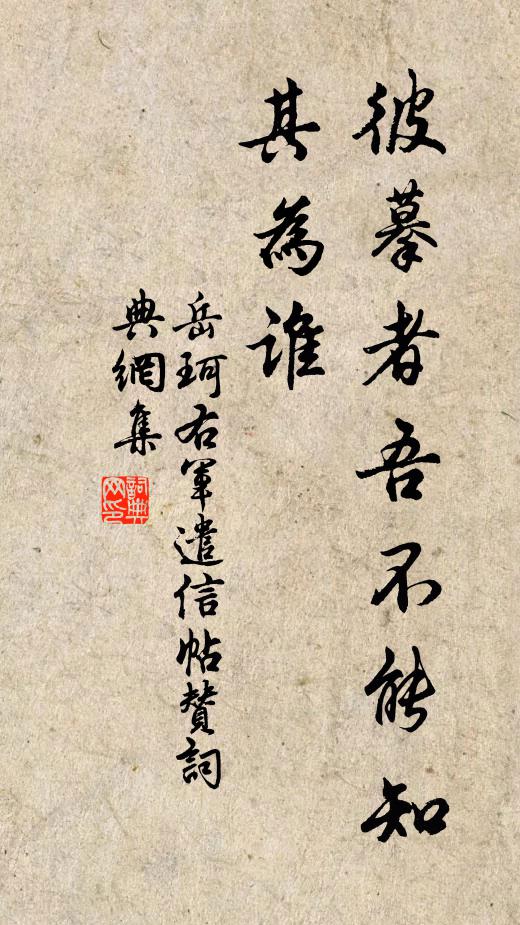 彼摹者吾不能知
其為誰
岳珂右軍遣信帖贊詞
典網集
詞典网印